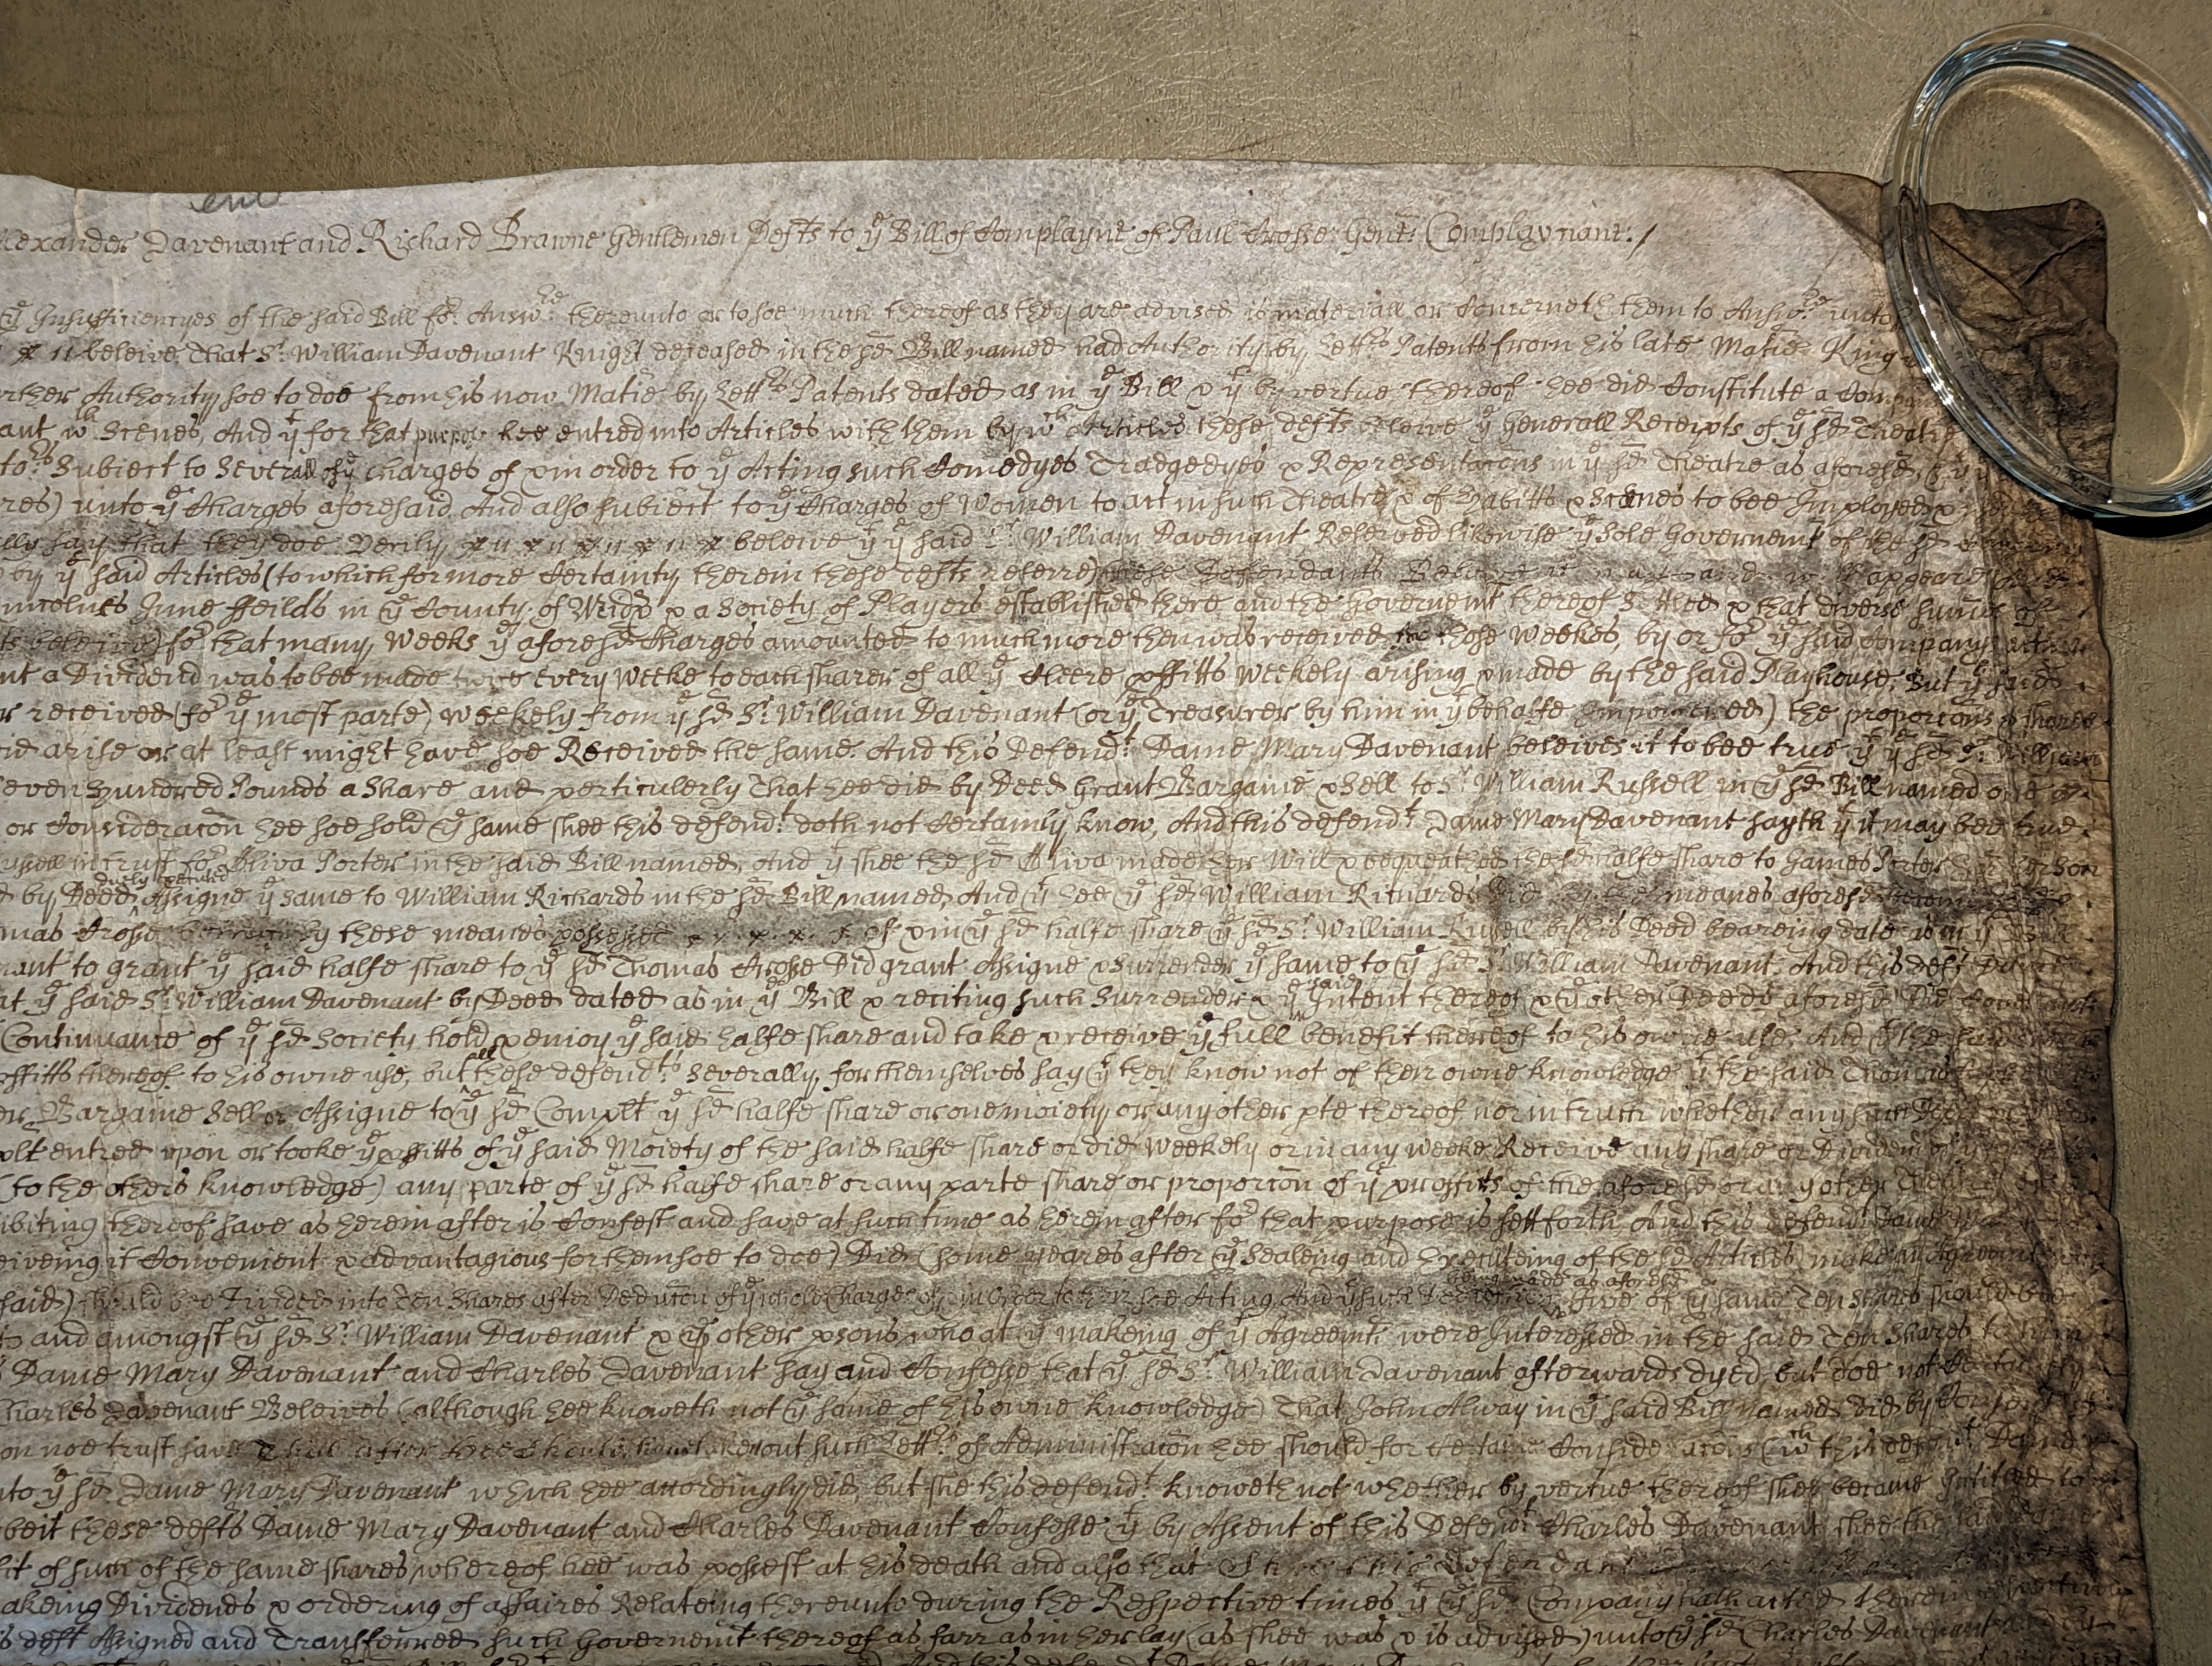 ent
lexander Davenant and Richard Browne Gentlemen Defts to yᵉ Bill of Complaynt of Paul Crosse Gent: Complaynant ./
yᵉ Insufficiencyes of the said Bill foʳ Answʳᵉ thereunto or to soe much thereof as they are advised is materiall or Concerneth them to Answʳᵉ unto
x 11 beleive That Sʳ William Davenant Knight deceased in the sd Bill named had Authority by Lettʳˢ Patents from his late Matie King
rther Authority soe to doe from his now Matie by Lettʳˢ Patents dated as in yᵉ Bill & yᵗ by vertue thereof hee did Constitute a Comp
ant wᵗʰ Scenes, And yᵗ for that purpose hee entred into Articles with them by wᶜʰ Articles these defts beleive yᵉ Generall Receipts of yᵉ sd Theatre
toʳˢ Subject to Severall of yᵉ Charges of & in order to yᵉ Acting such Comedyes Tradgedyes & Representacons in yᵉ sd Theatre as aforesd
res) unto yᵉ Charges aforesaid And also subject to yᵉ Charges of Women to act in such Theatre & of Habitts & Scenes to bee Imployed
lly say that they doe Verily x 11 x 11 x 11 x 11 x beleive yᵗ yᵉ said Sʳ William Davenant Reserved likewise yᵉ Sole Governemt of the sd
by yᵉ said Articles (to which for more Certainty therein these defts referre) these Defendants appeare
Lincolnes Inne ffeilds in yᵉ County of Midx & a Society of Players established there and the Governemt thereof Settled & that diverse summes of
ts beleive) foʳ that many Weeks yᵉ aforesd Charges amounted to much more then was received those Weekes, by or foʳ yᵉ said Company
nt a Dividend was to bee made every Weeke to each sharer of all yᵉ Cleere pffitts Weekely arising & made by the said Playhouse, But
r received (foʳ yᵉ most parte) Weekely from yᵉ sd Sʳ William Davenant (or yᵉ Treasurer by him in yᵗ behalfe Impowered) the proporcons & shares
id arise or at least might have soe Received the same. And this Defendᵗ Dame Mary Davenant beleives it to bee true yᵗ yᵉ sd Sʳ William
even Hundred Pounds a Share and perticulerly That hee did by Deed Grant Bargaine & Sell to Sʳ William Russell in yᵉ sd Bill named one
or Consideracon hee soe sold yᵉ same shee this defendᵗ doth not Certainly know, And this defendᵗ Dame Mary Davenant sayth yᵗ it may bee true
ussell in trust foʳ Oliva Porter in the said Bill named, And yᵗ shee the sd Oliva made her Will & bequeathed the sd halfe share to James Porter her son
by Deed duely executed Assigne yᵉ same to William Richards in the sd Bill named, And yᵗ hee yᵉ sd William Richards did by the meanes aforesd
mas Crosse by these meanes possessed x x x x of & in yᵉ sd halfe share yᵉ sd Sʳ William Russell by his Deed beareing date as in yᵉ Bill
nant to grant yᵉ said halfe share to yᵉ sd Thomas Crosse Did grant Assigne & Surrender yᵉ same to yᵉ sd Sʳ William Davenant. And this deft Dame
at yᵉ said Sʳ William Davenant by Deed dated as in yᵉ Bill & reciting such Surrender & yᵉ said Intent thereof & yᵉ other Deeds aforesd Did Covenant
Continuance of yᵉ sd Society hold & enjoy yᵉ said halfe share and take & receive yᵉ full benefit thereof to his owne use, And
offitts thereof to his owne use, but all these defendᵗˢ Severally for themselves say yᵗ they know not of their owne knowledge yᵗ the said Thomas
or Bargaine Sell or Assigne to yᵉ sd Complt yᵉ sd halfe share or one moiety or any other pte thereof nor in truth whether any such Deed
plt entred upon or tooke yᵉ pffitts of yᵉ said Moiety of the said halfe share or did Weekely or in any Weeke Receive any share or Dividend
(to the others knowledge) any parte of yᵉ sd halfe share or any parte share or proporcon of yᵉ proffitts of the aforesd or any other Theatre
ibiting thereof save as herein after is Confest and save at such time as herein after foʳ that purpose is sett forth. And this defendᵗ Dame
ceiveing it Convenient & advantagious for them soe to doe) Did (some yeares after yᵉ Sealeing and Executeing of the sd Articles) make an Agreement
said) should bee Divided into Ten Shares after Deducon of yᵉ whole Charge of & in order to their soe Acting, And yᵗ such Deduccon being made as aforesd ffive of yᵉ same Ten Shares should bee
to and amongst yᵉ sd Sʳ William Davenant & yᵉ other psons who at yᵉ makeing of yᵉ Agreemᵗ were Interessed in the said Ten Shares
Dame Mary Davenant and Charles Davenant say and Confesse that yᵉ sd Sʳ William Davenant afterwards dyed, but doe not
Charles Davenant Beleives (although hee knoweth not yᵉ same of his owne knowledge) That John Alway in yᵉ said Bill named did by
on noe trust save that after hee should have taken out such Lettʳˢ of Administracon hee should for Certaine Consideracons wᶜʰ this defendᵗ Dame
nto yᵉ sd Dame Mary Davenant which hee accordingly did, but she this defendᵗ knoweth not whether by vertue thereof shee became Intitled to
beit these defts Dame Mary Davenant and Charles Davenant Confesse yᵗ by Assent of this Defendᵗ Charles Davenant shee the said Dame
fit of such of the same shares whereof hee was possest at his death and also that Shee this Defendant
akeing Dividends & ordering of affaires Relateing thereunto during the Respective times yᵗ yᵉ sd Company hath acted therein respectively
is deft Assigned and Transferred such Governemt thereof as farr as in her lay (as shee was & is advised) unto yᵉ sd Charles Davenant